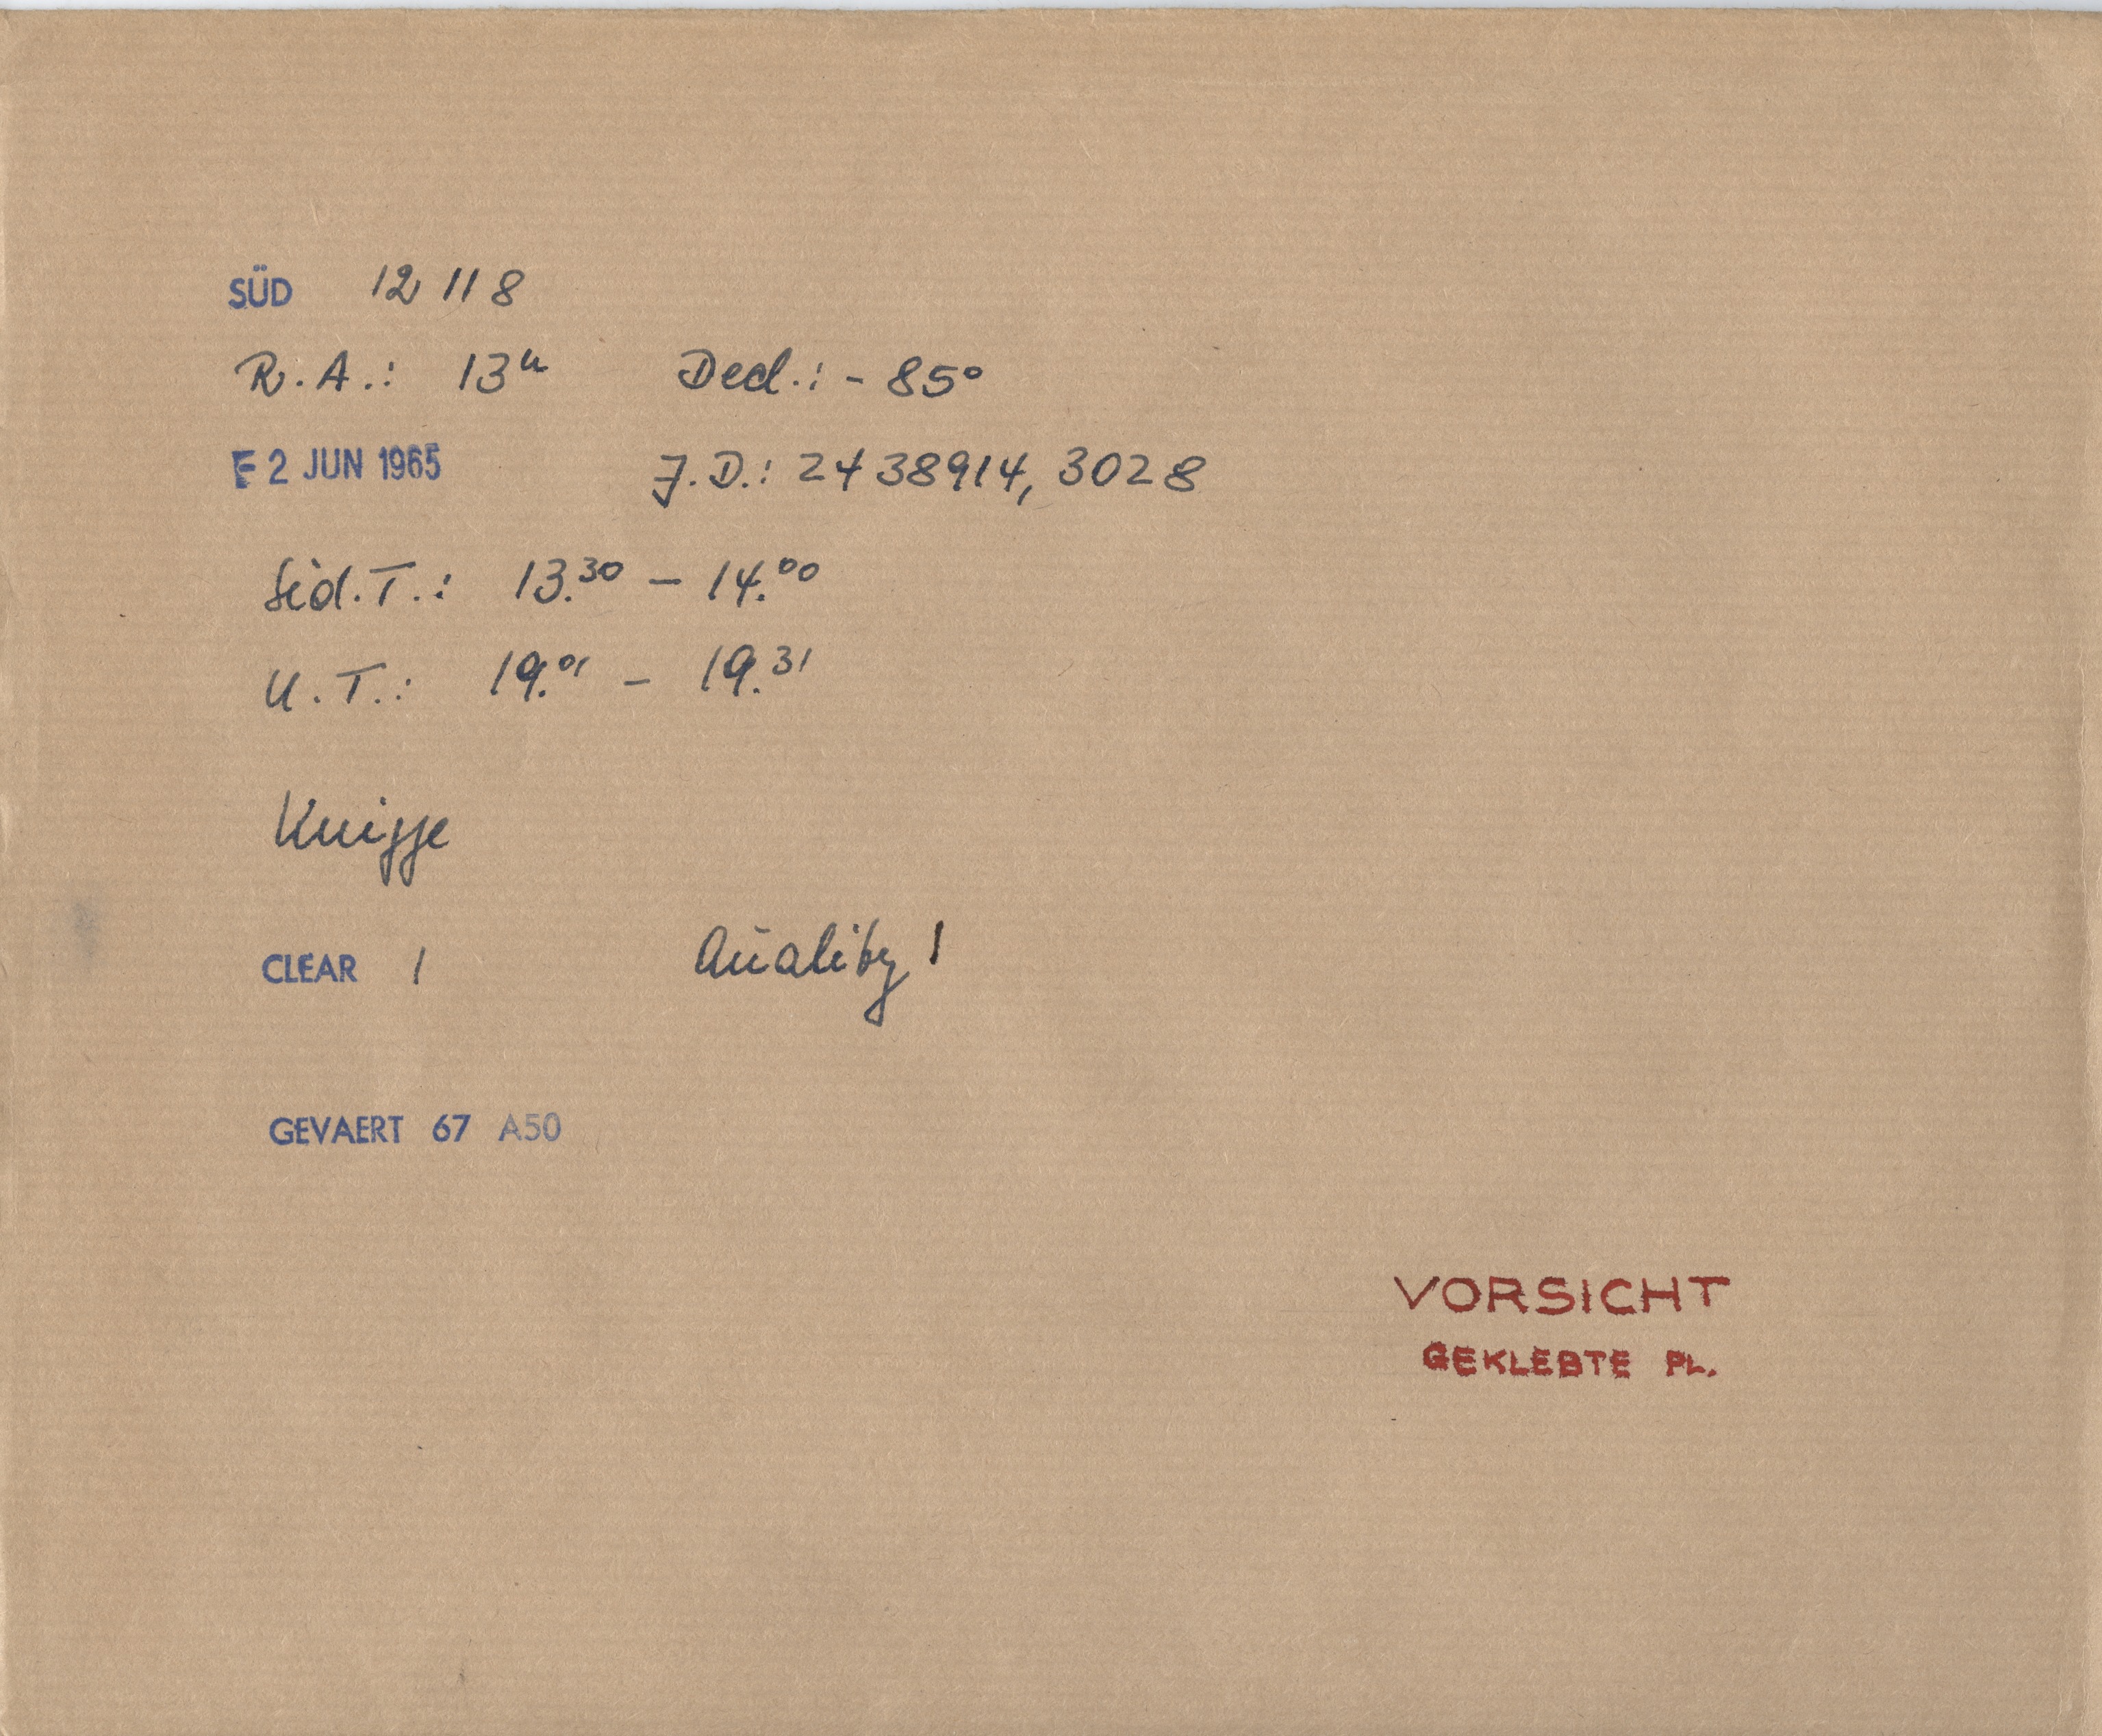 SÜD 12 118
R.A.: 13h Decl.: - 85°
E 2 JUN 1965 J.D.: 24 38914, 3028
Sid.T.: 13.30 – 14.00
U.T.: 19.01 – 19.31
Knigge
CLEAR 1 Quality 1
GEVAERT 67 A50
VORSICHT
GEKLEBTE PL.